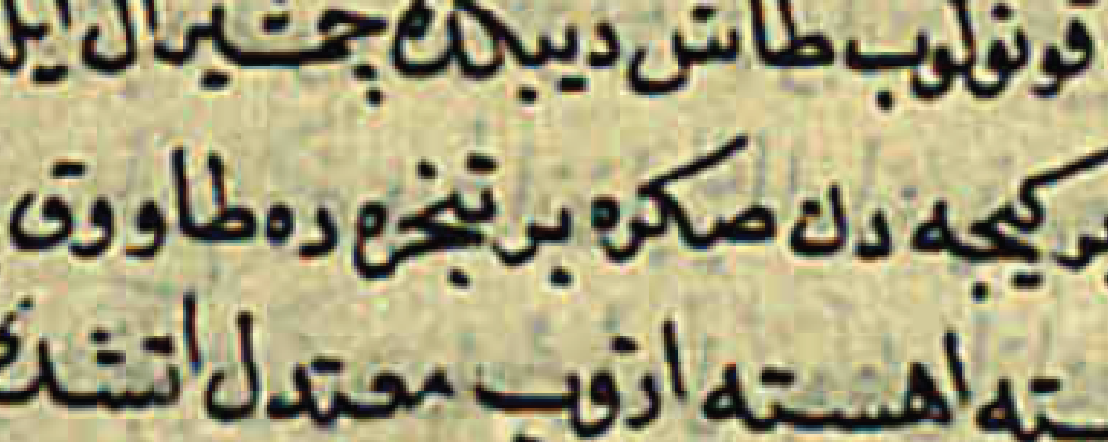 قونولوب طاش ديبكده چتيرال ايله
بر كيجه دن صكره بر تنجره ده طاووق
سته اهسته ازوب معتدل اتشده